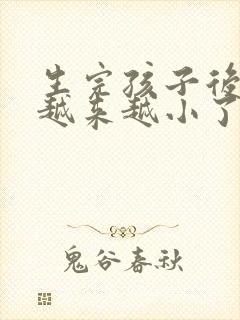 生完孩子後
越来越小了
鬼谷春秋